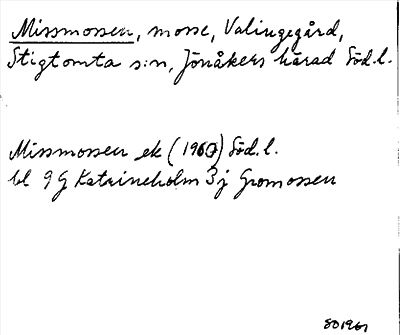 Missmossen, mosse, Valingegård,
Stigtomta s:n, Jönåkers härad Söd.l.
Missmossen ek (1960) Söd.l.
bl 9G Katrineholm 3j Gromossen
SO 1961